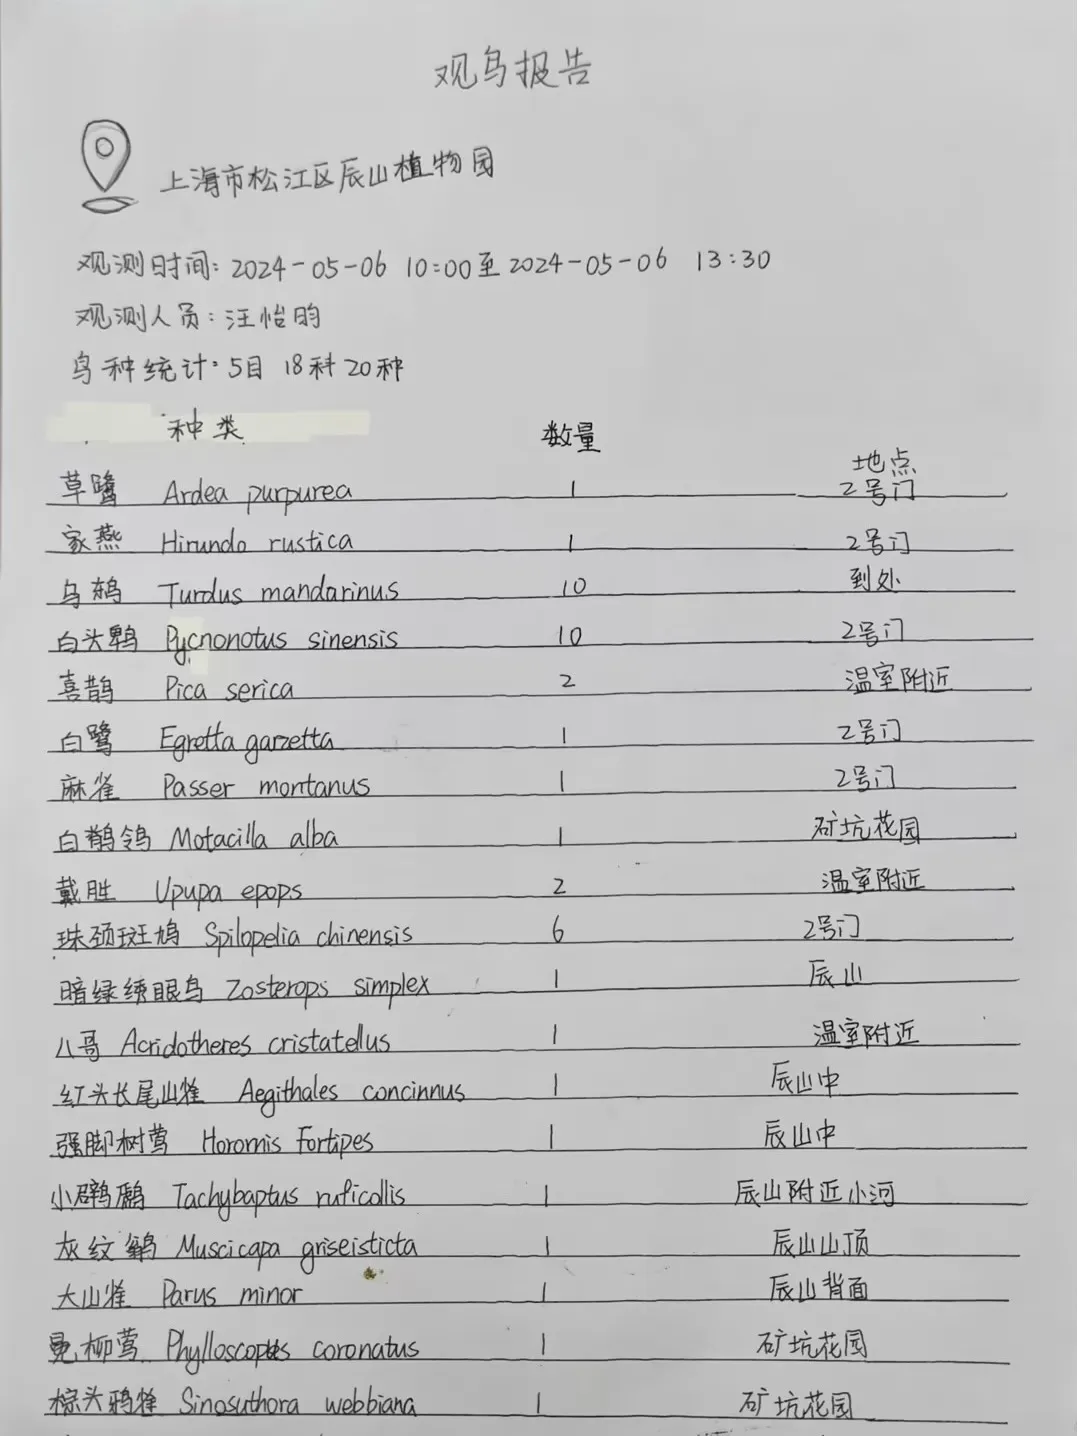 观鸟报告
上海市松江区辰山植物园
观测时间: 2024-05-06 10:00至2024-05-06 13:30
观测人员: 汪怡昀
鸟种统计: 5目 18科 20种
种类 数量 地点
草鹭 Ardea purpurea 1 2号门
家燕 Hirundo rustica 1 2号门
乌鸫 Turdus mandarinus 10 到处
白头鹎 Pycnonotus sinensis 10 2号门
喜鹊 Pica serica 2 温室附近
白鹭 Egretta garzetta 1 2号门
麻雀 Passer montanus 1 2号门
白鹡鸰 Motacilla alba 1 矿坑花园
戴胜 Upupa epops 2 温室附近
珠颈斑鸠 Spilopelia chinensis 6 2号门
暗绿绣眼鸟 Zosterops simplex 1 辰山
八哥 Acridotheres cristatellus 1 温室附近
红头长尾山雀 Aegithales concinnus 1 辰山中
强脚树莺 Horornis Fortipes 1 辰山中
小䴙䴘 Tachybaptus ruficollis 1 辰山附近小河
灰纹鹟 Muscicapa griseisticta 1 辰山山顶
大山雀 Parus minor 1 辰山背面
冕柳莺 Phylloscoptes coronatus 1 矿坑花园
棕头鸦雀 Sinosuthora webbiana 1 矿坑花园